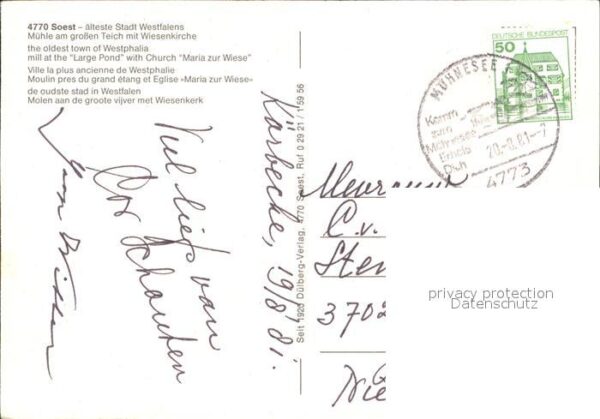 4770 Soest - älteste Stadt Westfalens
Mühle am großen Teich mit Wiesenkirche
the oldest town of Westphalia
mill at the "Large Pond" with Church "Maria zur Wiese"
Ville la plus ancienne de Westphalie
Moulin pres du grand étang et Eglise »Maria zur Wiese«
de oudste stad in Westfalen
Molen aan de groote vijver met Wiesenkerk
DEUTSCHE BUNDESPOST
50
MÖHNESEE
Komm
zum
Möhnesee
Erhole
Dich
20.-8.81.-7
4773
Körbecke, 19/8 81.
Viel liefs van
Cor Schouten
Seit 1920 Dülberg-Verlag, 4770 Soest, Ruf 0 29 21 / 1 59 56
C. v.
Ste
3702
privacy protection
Datenschutz